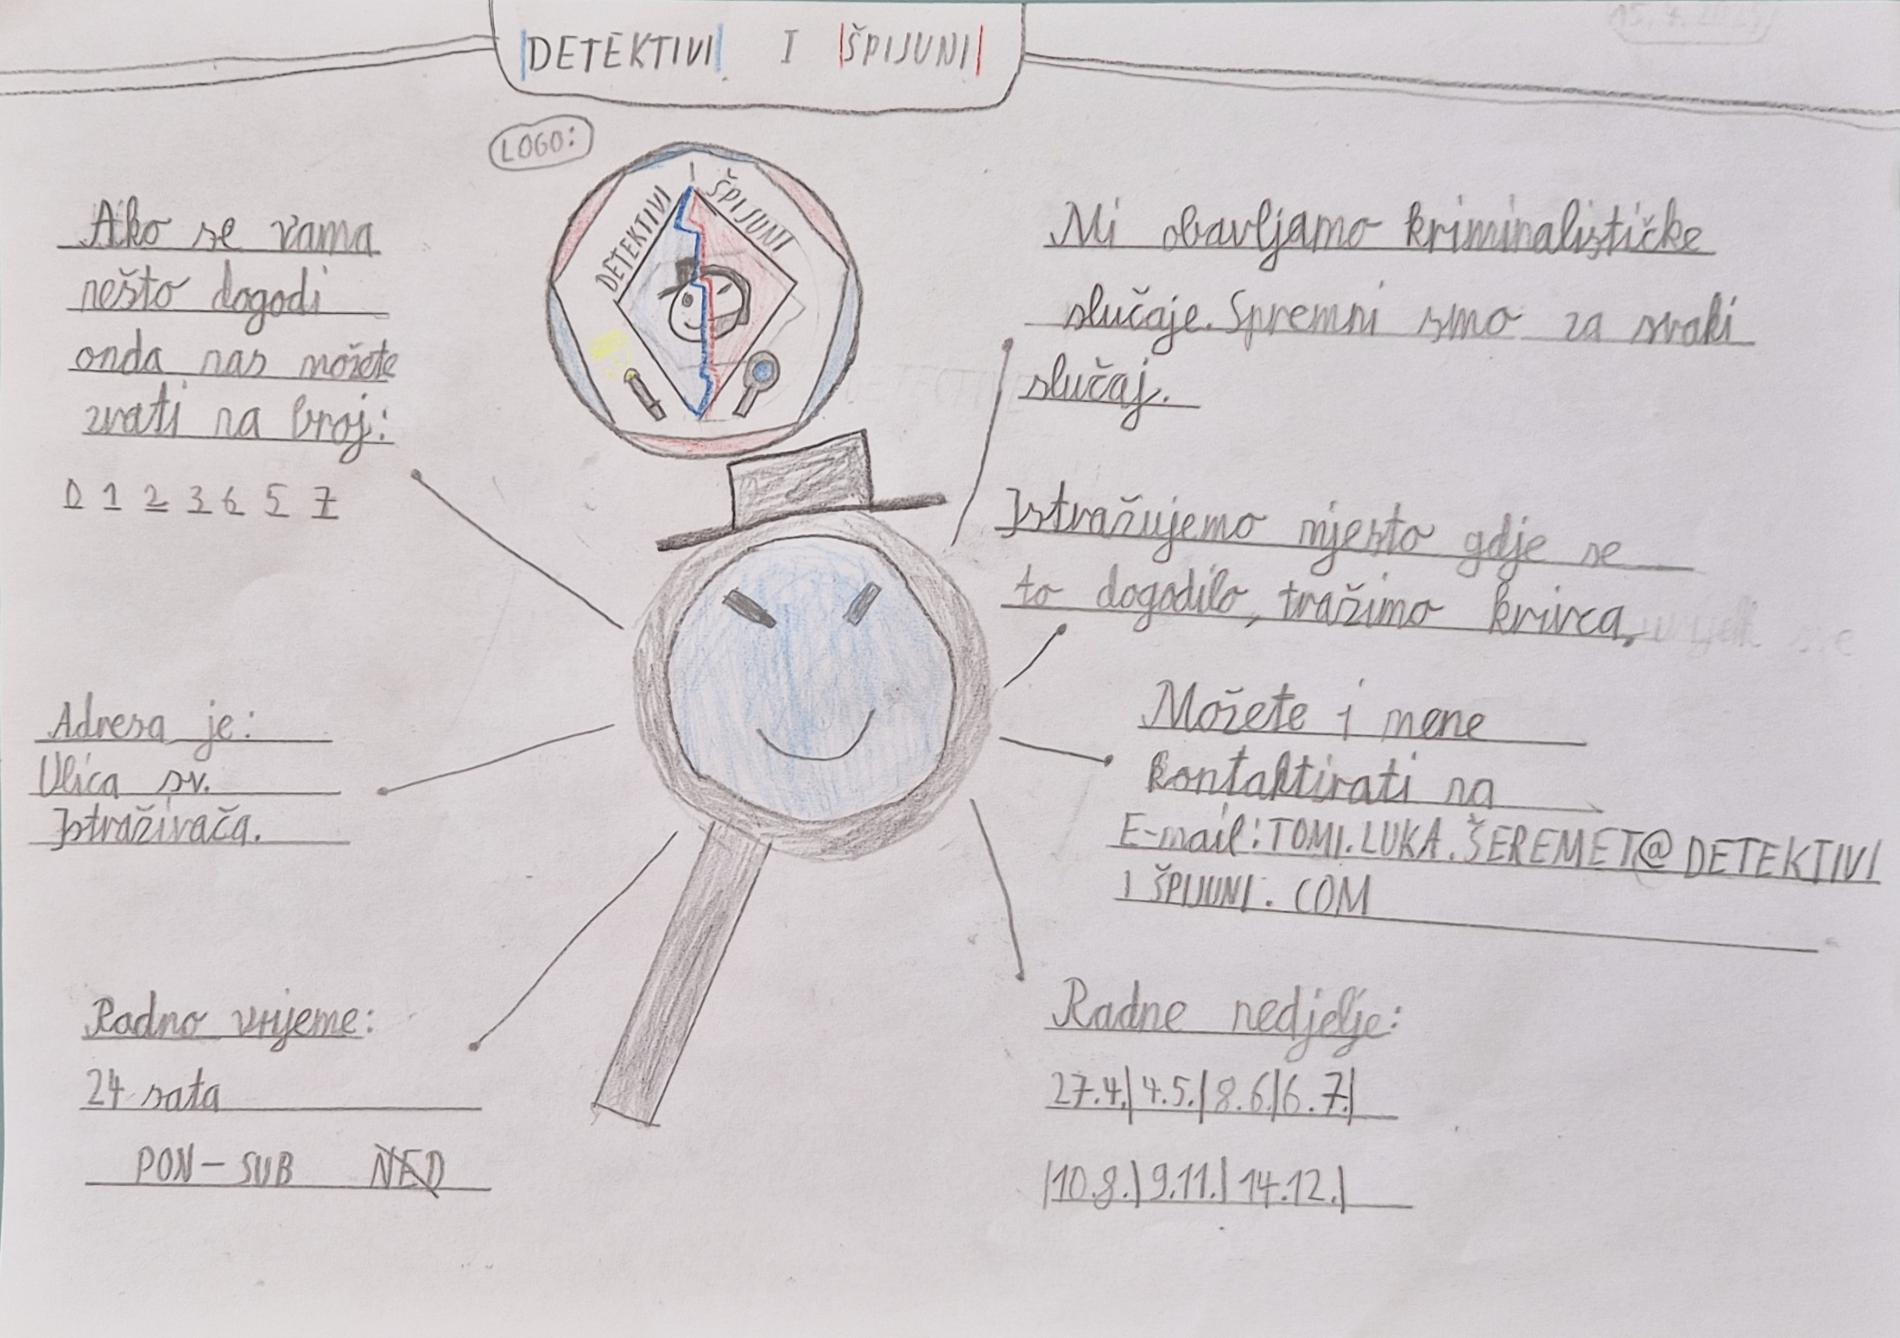 DETEKTIVI I ŠPIJUNI
LOGO:
DETEKTIVI
ŠPIJUNI
Ako se vama
nešto dogodi
onda nas možete
zvati na broj:
0 1 2 3 6 5 7
Adresa je:
Ulica sv.
Istraživača.
Radno vrijeme:
24 sata
PON-SUB NED
Mi obavljamo kriminalističke
slučaje. Spremni smo za svaki
slučaj.
Istražujemo mjesto gdje se
to dogodilo, tražimo krivca.
Možete i mene
kontaktirati na
E-mail: TOMI.LUKA.ŠEREMET@DETEKTIVI
I ŠPIJUNI.COM
Radne nedjelje:
27.4.|4.5.|8.6.|6.7.|
|10.8.|9.11.|14.12.|